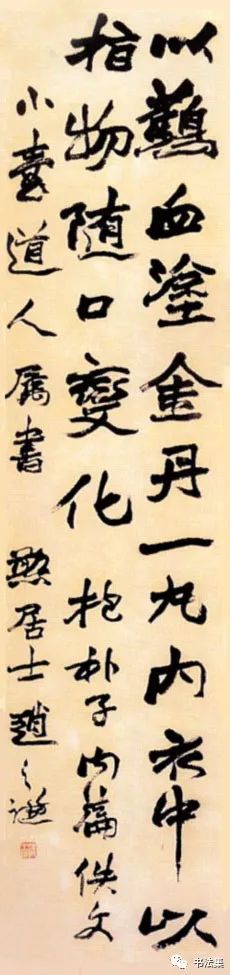 以鷄血塗金丹一丸内衣中以
指物随口變化 抱朴子内篇佚文
小臺道人属書 憨居士趙之謙
书法集